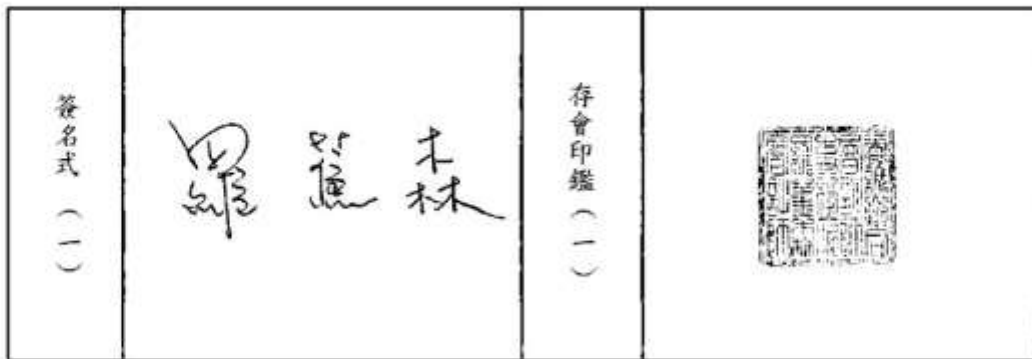 簽名式（一）
羅蕉森
存會印鑑（一）